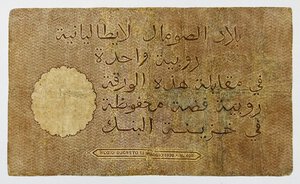 بلاد الصومال لايطاليانية
روبية واحدة
في مقابلة هذه الورقة
روبية فضة محفوظة
في خزينة البنك